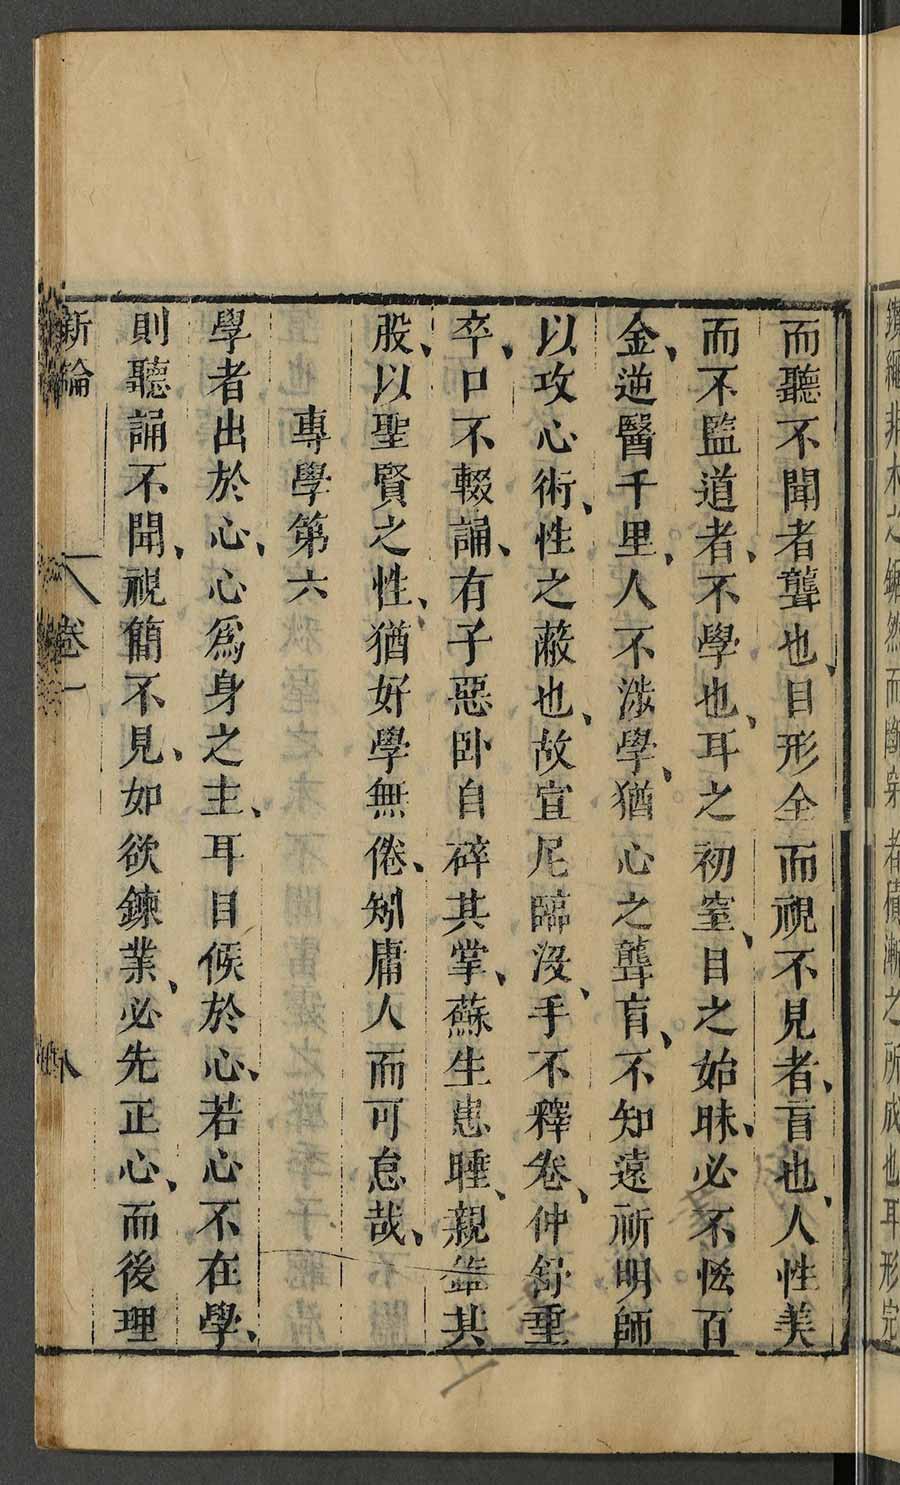 續繩非木之鋸然而斷穿者積漸之所成也耳形完
而聽不聞者聾也、目形全而視不見者、盲也、人性美
而不監道者、不學也、耳之初窒、目之始昧、必不恡百
金、逆醫千里、人不涉學、猶心之聾盲、不知遠祈明師
以攻心術、性之蔽也、故宣尼臨沒、手不釋卷、仲舒垂
卒、口不輟誦、有子惡卧自碎其掌、蘇生患睡、親錐其
股、以聖賢之性、猶好學無倦、矧庸人而可怠哉、
專學第六
學者出於心、心爲身之主、耳目候於心、若心不在學、
則聽誦不聞、視簡不見、如欲鍊業、必先正心、而後理
新論 卷一 八